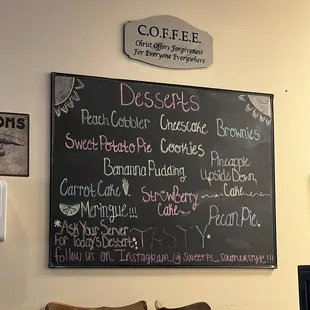 C.O.F.F.E.E.
Christ Offers Forgiveness
For Everyone Everywhere
OMS
Desserts
Peach Cobbler Cheescake Brownies
Sweet Potato Pie Cookies
Bananna Pudding
Pineapple
Upside Down
Cake
Carrot Cake
Strawberry
Cake
Meringue!!!
Pecan Pie.
*Ask Your Server
For Today's Dessert
TASTY
follow us on Instagram @